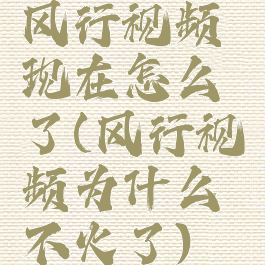 风行视频
现在怎么
了(风行视
频为什么
不火了)